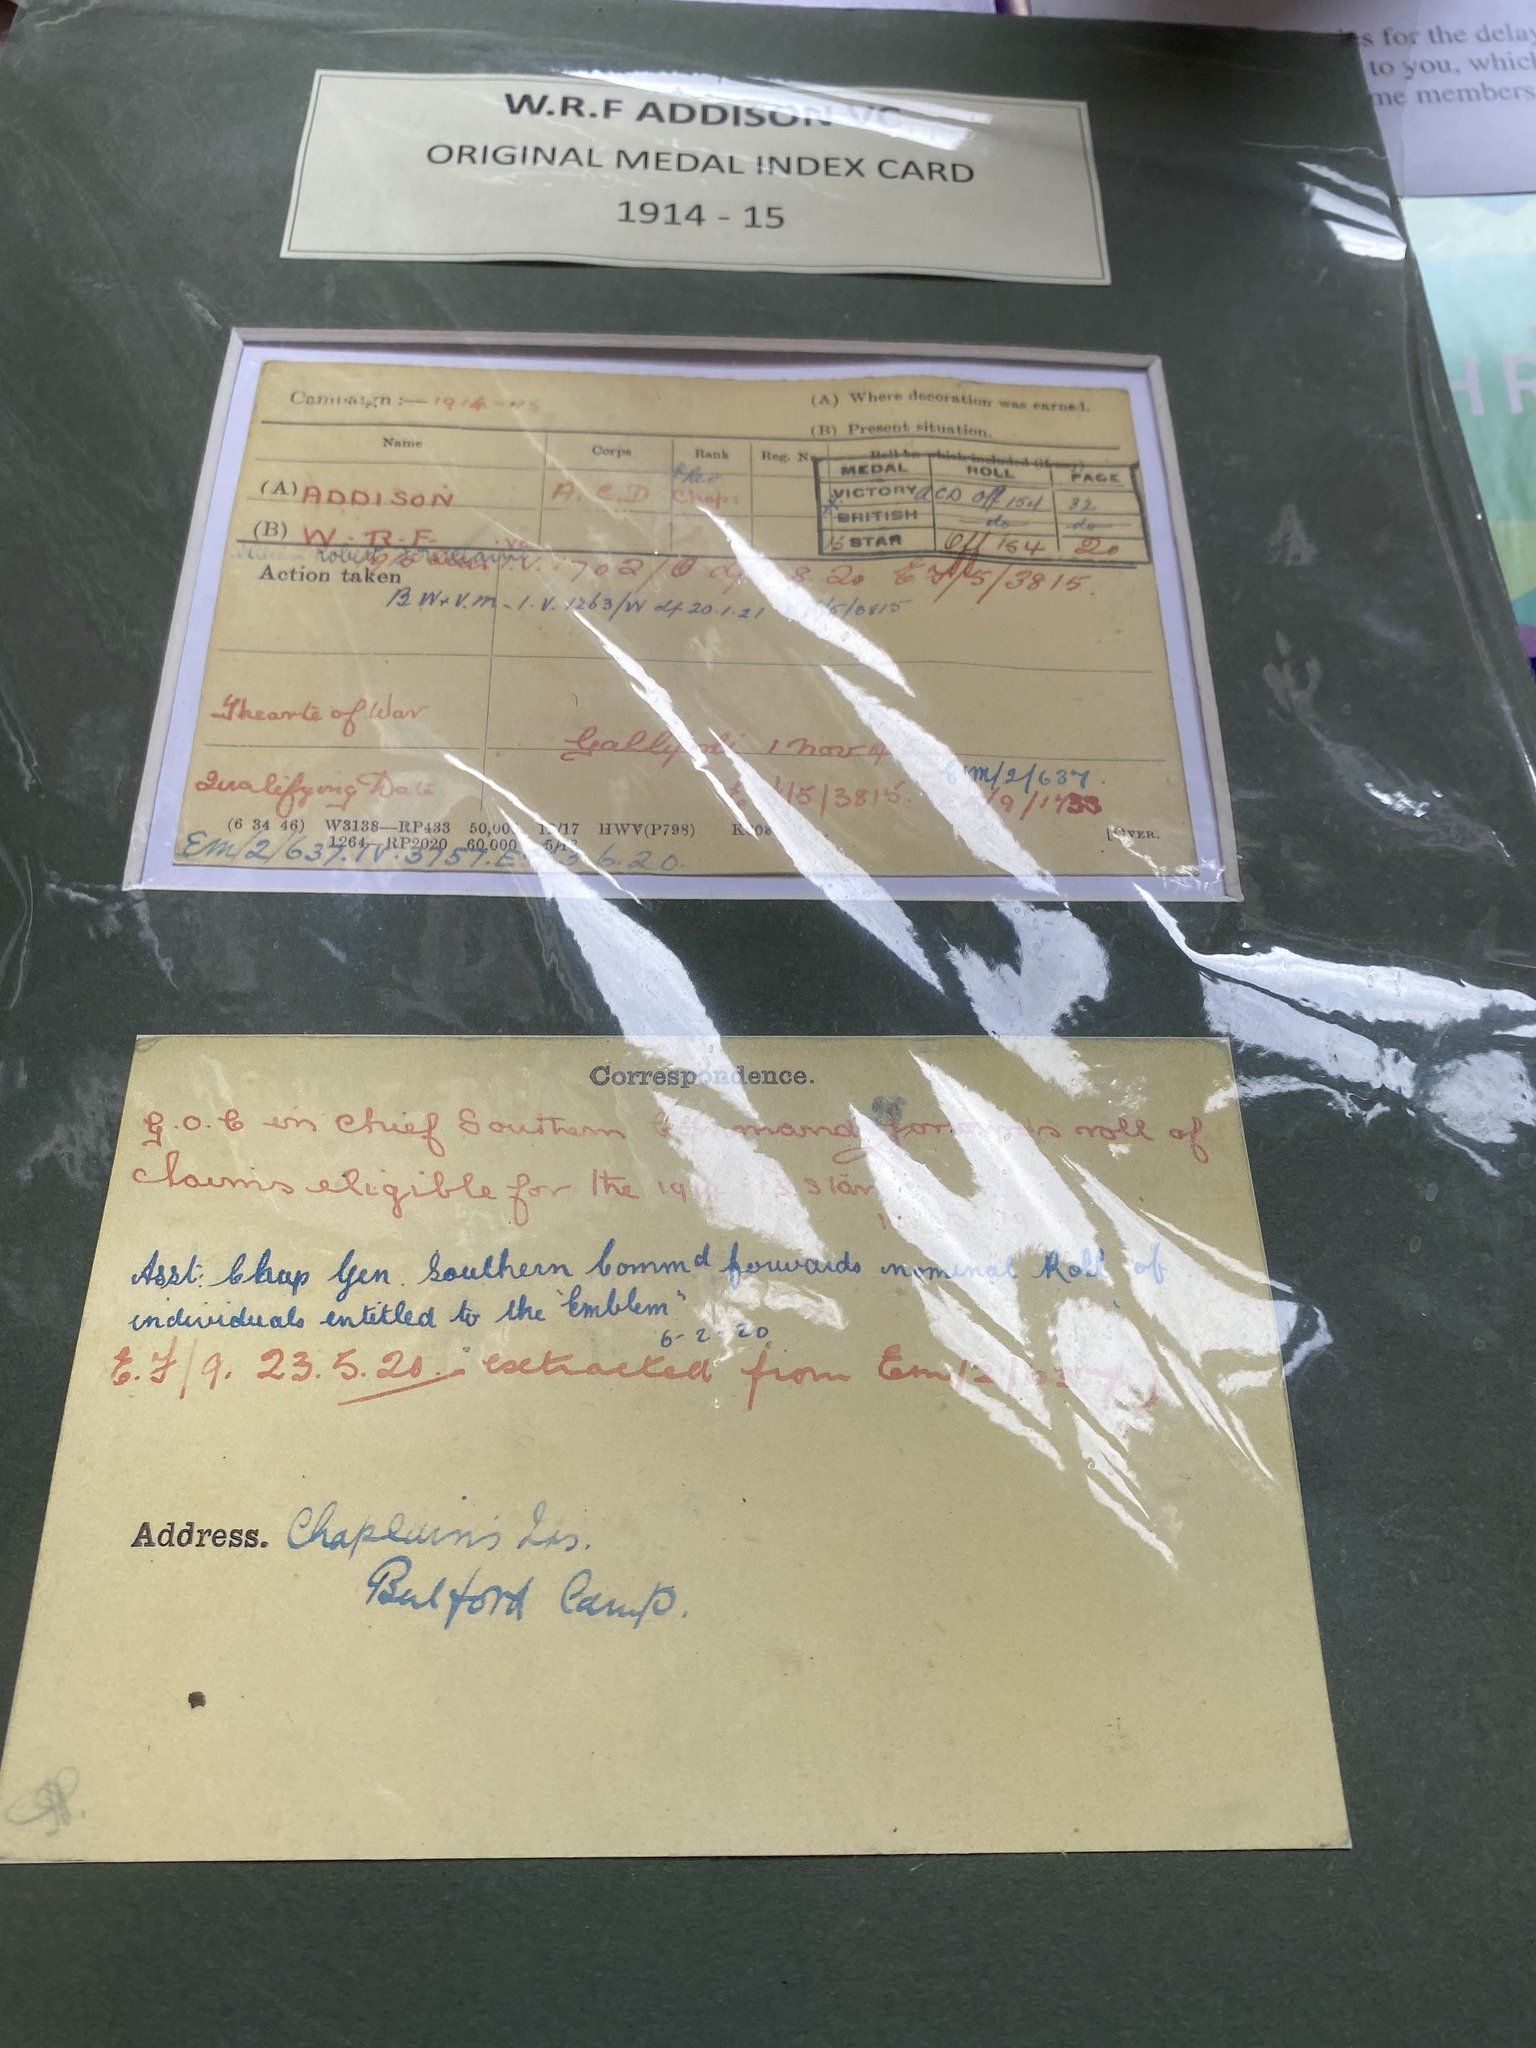 s for the delay
to you, which
me members
W.R.F ADDISON VC
ORIGINAL MEDAL INDEX CARD
1914 - 15
Campaign :— 1914-15
(A) Where decoration was earned.
(B) Present situation.
Name Corps Rank Reg. No. Roll on which included (if any)
MEDAL ROLL PAGE
(A) ADDISON A.C.D Rev Chap:
VICTORY ACD Off 154 32
BRITISH do do
15 STAR Off 154 20
(B) W. R. F. VC
Robert
Action taken I.V. 1702/ 8.20 E F/5/3815.
B W+V.M - I.V. 1263/W d/ 20.1.21 /5/3815
Thearte of War
Gallipoli 1 Nov
EM/2/637.
Qualifying Date /5/3815 /9/1733
(6 34 46) W3138—RP433 50,000 12/17 HWV(P798) [OVER.
1264—RP2020 60,000 5/18
EM/2/637. IV. 3757. E 6.20.
HR
Correspondence.
G.O.C in Chief Southern Command forwards roll of
claims eligible for the 1914-15 Star
Asst: Chap Gen. Southern Commd forwards nominal Roll of
individuals entitled to the "Emblem"
6-2-20
E.F/9. 23.5.20. extracted from Em/2/
Address. Chaplain's Qrs.
Bulford Camp.